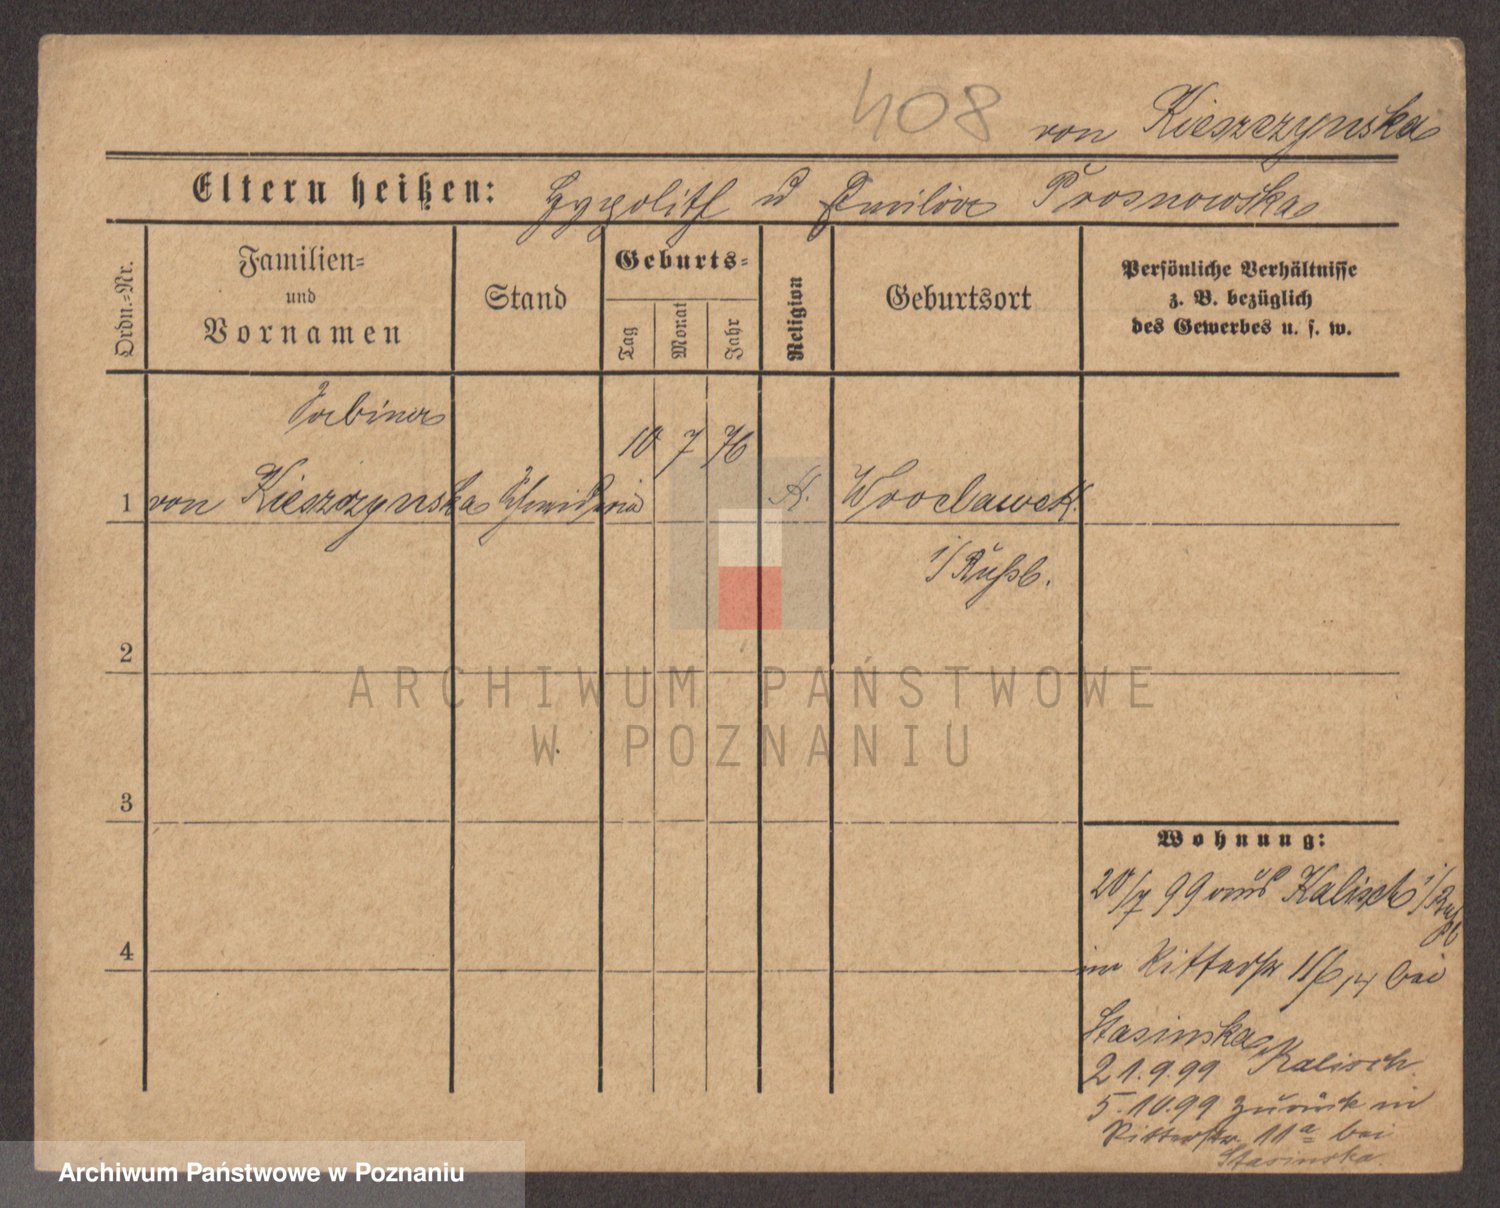 408 von Kieszczynska
Eltern heißen: Hypolith u Emilie Prosnowska
Ordn.-Nr.
Familien-
und
Vornamen
Stand
Geburts-
Tag
Monat
Jahr
Religion
Geburtsort
Persönliche Verhältnisse
z. B. bezüglich
des Gewerbes u. s. w.
Sabina
10 7 76
1 von Kieszczynska K. Wroclawek
i/Rußl.
2
3
4
Wohnung:
20/7 99 aus Kalisch i/Rußl
in Ritterstr bei
Stasinska
21.9.99 Kalisch.
5.10.99 zurück in
Ritterstr. 11a bei
Stasinska.
ARCHIWUM PAŃSTWOWE
W POZNANIU
Archiwum Państwowe w Poznaniu